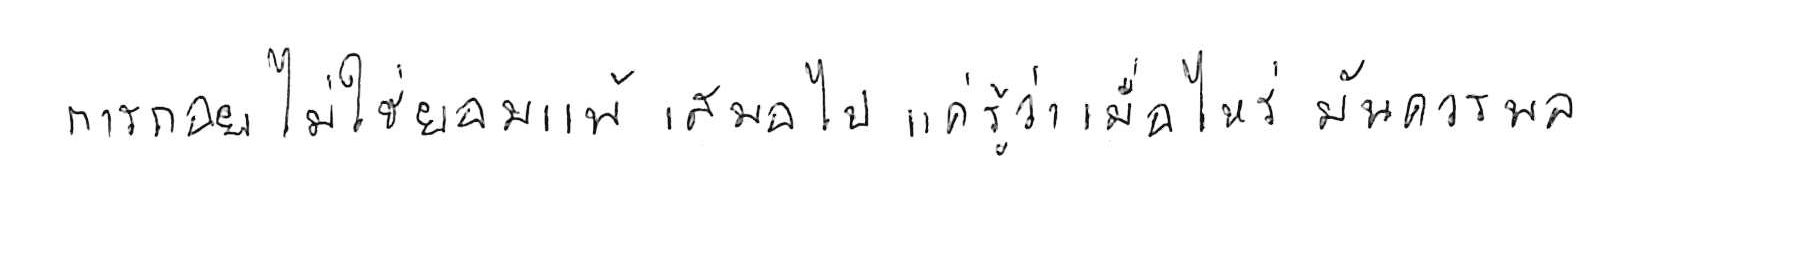 การถอยไม่ใช่ยอมแพ้ เสมอไป แค่รู้ว่าเมื่อไหร่ มันควรพอ